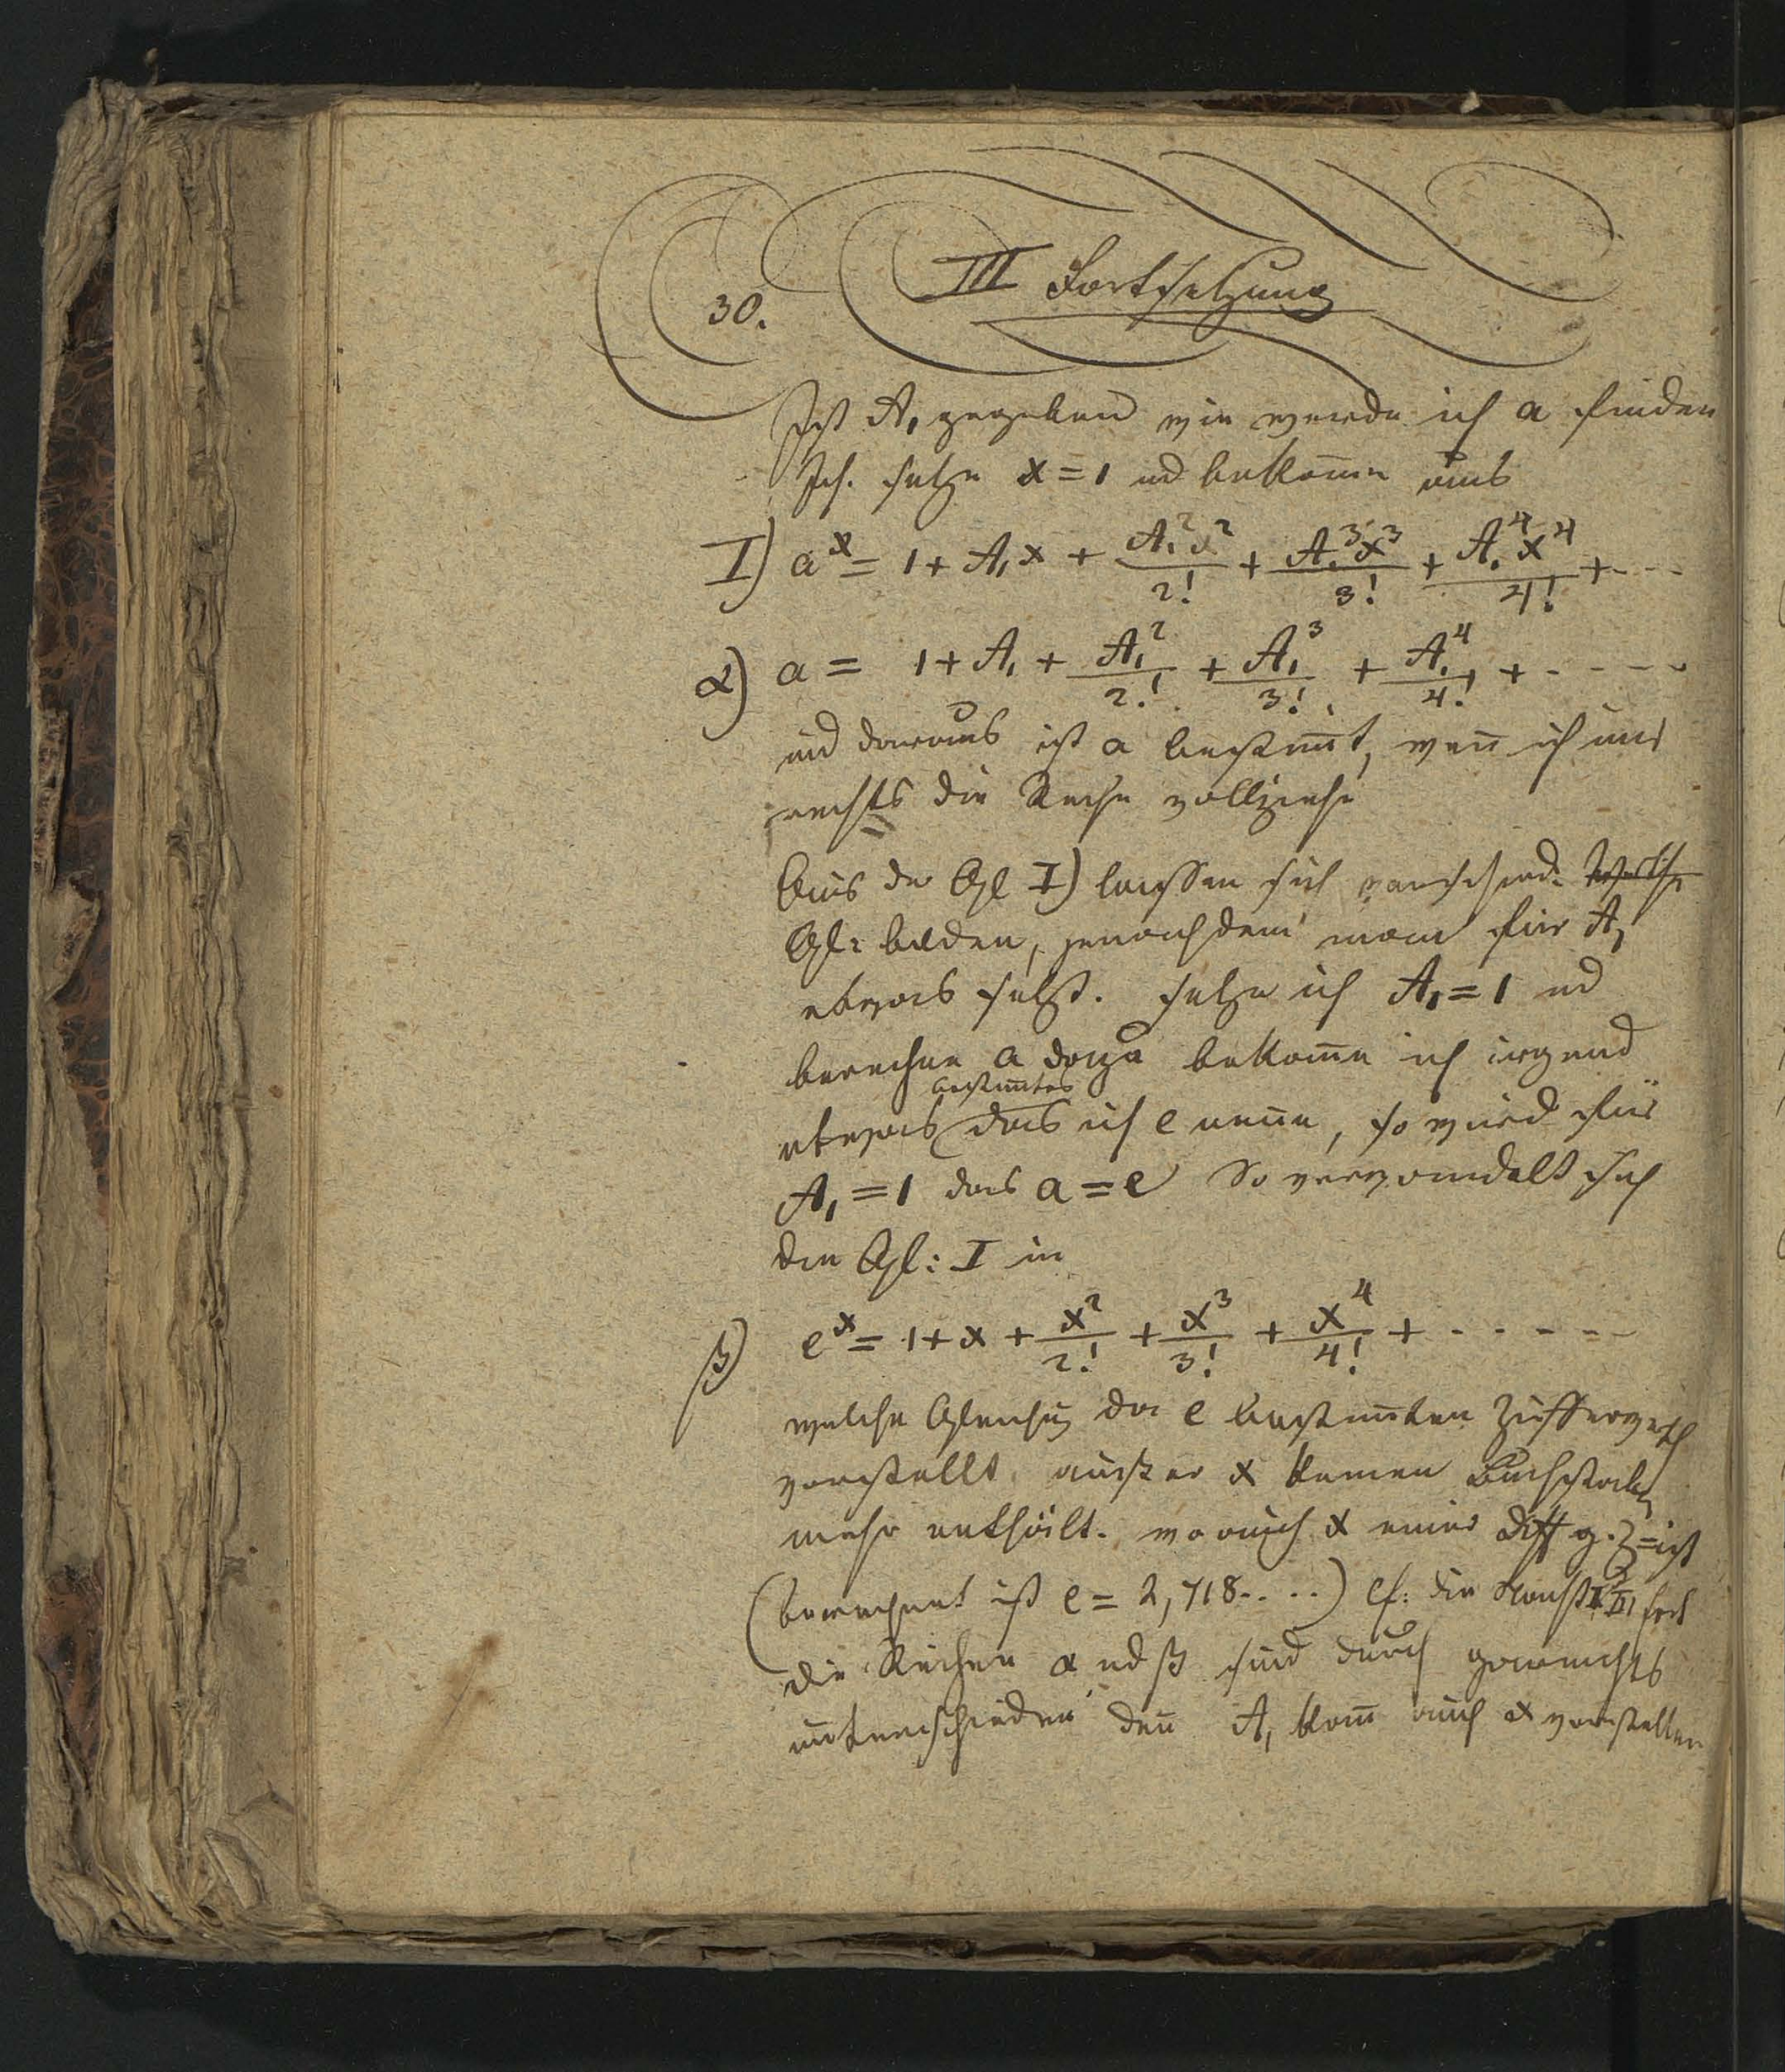 30.
III Fortsetzung
Ist A₁ gegeben wie werde ich a finden
Ich setze x = 1 ud bekom̅e aus
I) aˣ = 1 + A₁x + A₁²x²/2! + A₁³x³/3! + A₁⁴x⁴/4! + ---
α) a = 1 + A₁ + A₁²/2! + A₁³/3! + A₁⁴/4! + ----
ud daraus ist a bestim̅t, wen̅ ich nur
rechts die Reihe vollziehe
Aus der Gl I) lassen sich verschied: Werthe
Gl: bilden, jenachdem man für A₁
etwas setzt. setze ich A₁ = 1 ud
berechne a dazu bekom̅e ich irgend
bestim̅tes
etwas das ich e nen̅e, so wird für
A₁ = 1 das a = e So verwandelt sich
die Gl: I in
β) eˣ = 1 + x + x²/2! + x³/3! + x⁴/4! + -----
welche Gleichug da e bestim̅ten Ziffernwerth
vorstellt außer x keinen Buchstaben
mehr enthält. wo auch x einer Diff g. Z = ist
(berechnet ist e = 2,718....) cf: die
die Reihen α ud β sind durch garnichts
unterschieden den̅ A₁ kan̅ auch x vorstellen